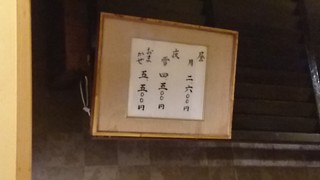 昼
月 二、六〇〇円
雪 四、三〇〇円
おまかせ 五、五〇〇円